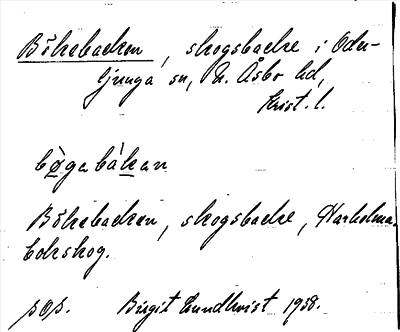 Bökebacken, skogsbacke i Oder-
ljunga sn, N. Åsbo hd,
Krist. l.
bøgabákan
Bökebacken, skogsbacke, Harholma
bokskog.
sOs. Birgit Lundkvist 1938.